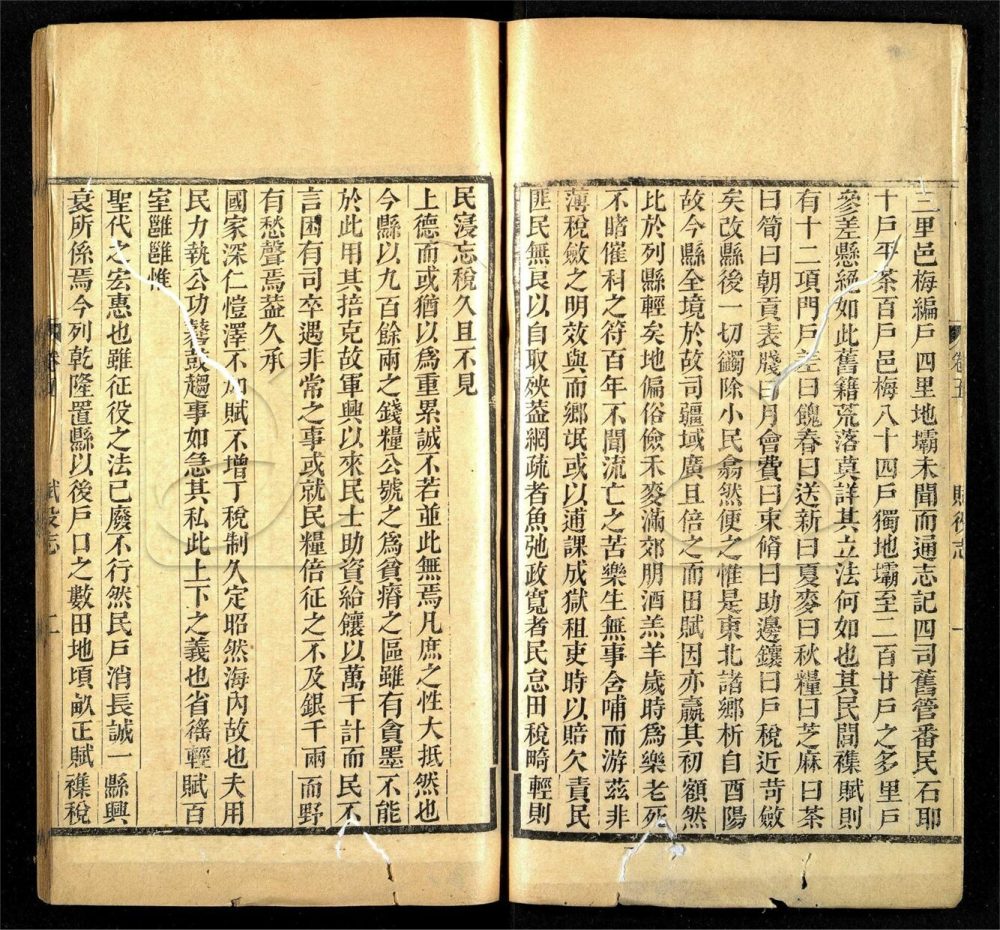 三里邑梅編戶四里地壩未聞而通志記四司舊管番民石耶
十戶平茶百戶邑梅八十四戶獨地壩至二百廿戶之多里戶
參差懸絕如此舊籍荒落莫詳其立法何如也其民間襍賦則
有十二項門戶差曰餽春曰送新曰夏麥曰秋糧曰芝麻曰茶
曰筍曰朝貢表牋曰月會費曰束脩曰助邊鑲曰戶稅近苛斂
矣改縣後一切蠲除小民翕然便之惟是東北諸鄉析自酉陽
故今縣全境於故司疆域廣且倍之而田賦因亦贏其初額然
比於列縣輕矣地偏俗儉禾麥滿郊朋酒羔羊歲時爲樂老死
不睹催科之符百年不聞流亡之苦樂生無事含哺而游茲非
薄稅斂之明效與而鄉氓或以逋課成獄租吏時以賠欠責民
匪民無良以自取殃葢網疏者魚弛政寬者民怠田稅畸輕則
卷五
賦役志
一
民寖忘稅久且不見
上德而或猶以爲重累誠不若並此無焉凡庶之性大抵然也
今縣以九百餘兩之錢糧公號之爲貧瘠之區雖有貪墨不能
於此用其掊克故軍興以來民士助資給鑲以萬千計而民不
言困有司卒遇非常之事或就民糧倍征之不及銀千兩而野
有愁聲焉葢久承
國家深仁愷澤不加賦不增丁稅制久定昭然海內故也夫用
民力執公功鼛鼓趨事如急其私此上下之義也省徭輕賦百
室雝雝惟
聖代之宏惠也雖征役之法已廢不行然民戶消長誠一縣興
衰所係焉今列乾隆置縣以後戶口之數田地頃畝正賦襍稅
賦役志
二